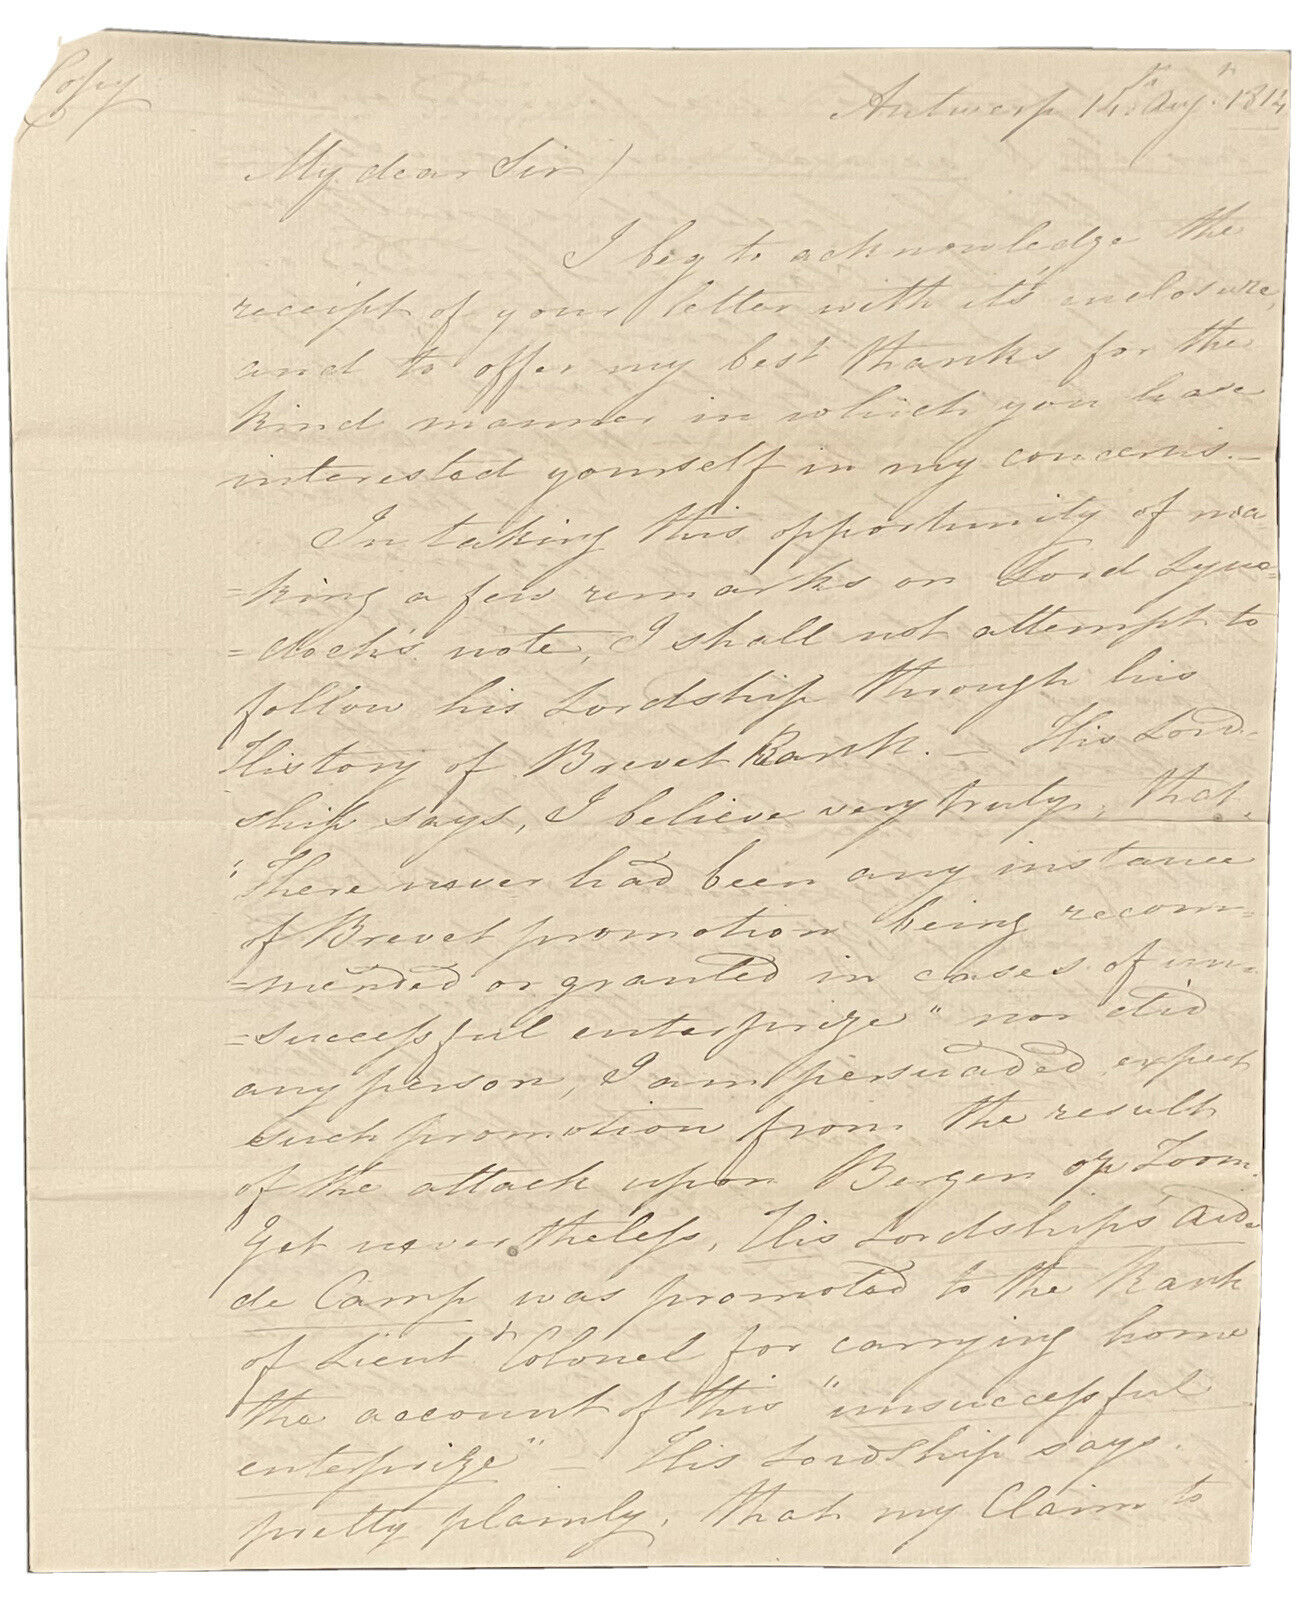 Copy
Antwerp 14th Augt 1814
My dear Sir /
I beg to acknowledge the
receipt of your letter with it's enclosure,
and to offer my best thanks for the
kind manner in which you have
interested yourself in my concerns. —
In taking this opportunity of ma-
=king a few remarks on Lord Lyne-
=doch's note, I shall not attempt to
follow his Lordship through his
History of Brevet Rank. — His Lord-
ship says, I believe very truly, that,
"There never had been any instance
of Brevet promotion being recom-
=mended or granted in cases of un-
=successful enterprize" nor did
any person, I am persuaded, expect
such promotion from the result
of the attack upon Bergen op Zoom.
Yet nevertheless, His Lordships' Aid
de Camp was promoted to the Rank
of Lieut. Colonel for carrying home
the account of this "unsuccessful
enterprize" — His Lordship says,
pretty plainly, that my Claim to